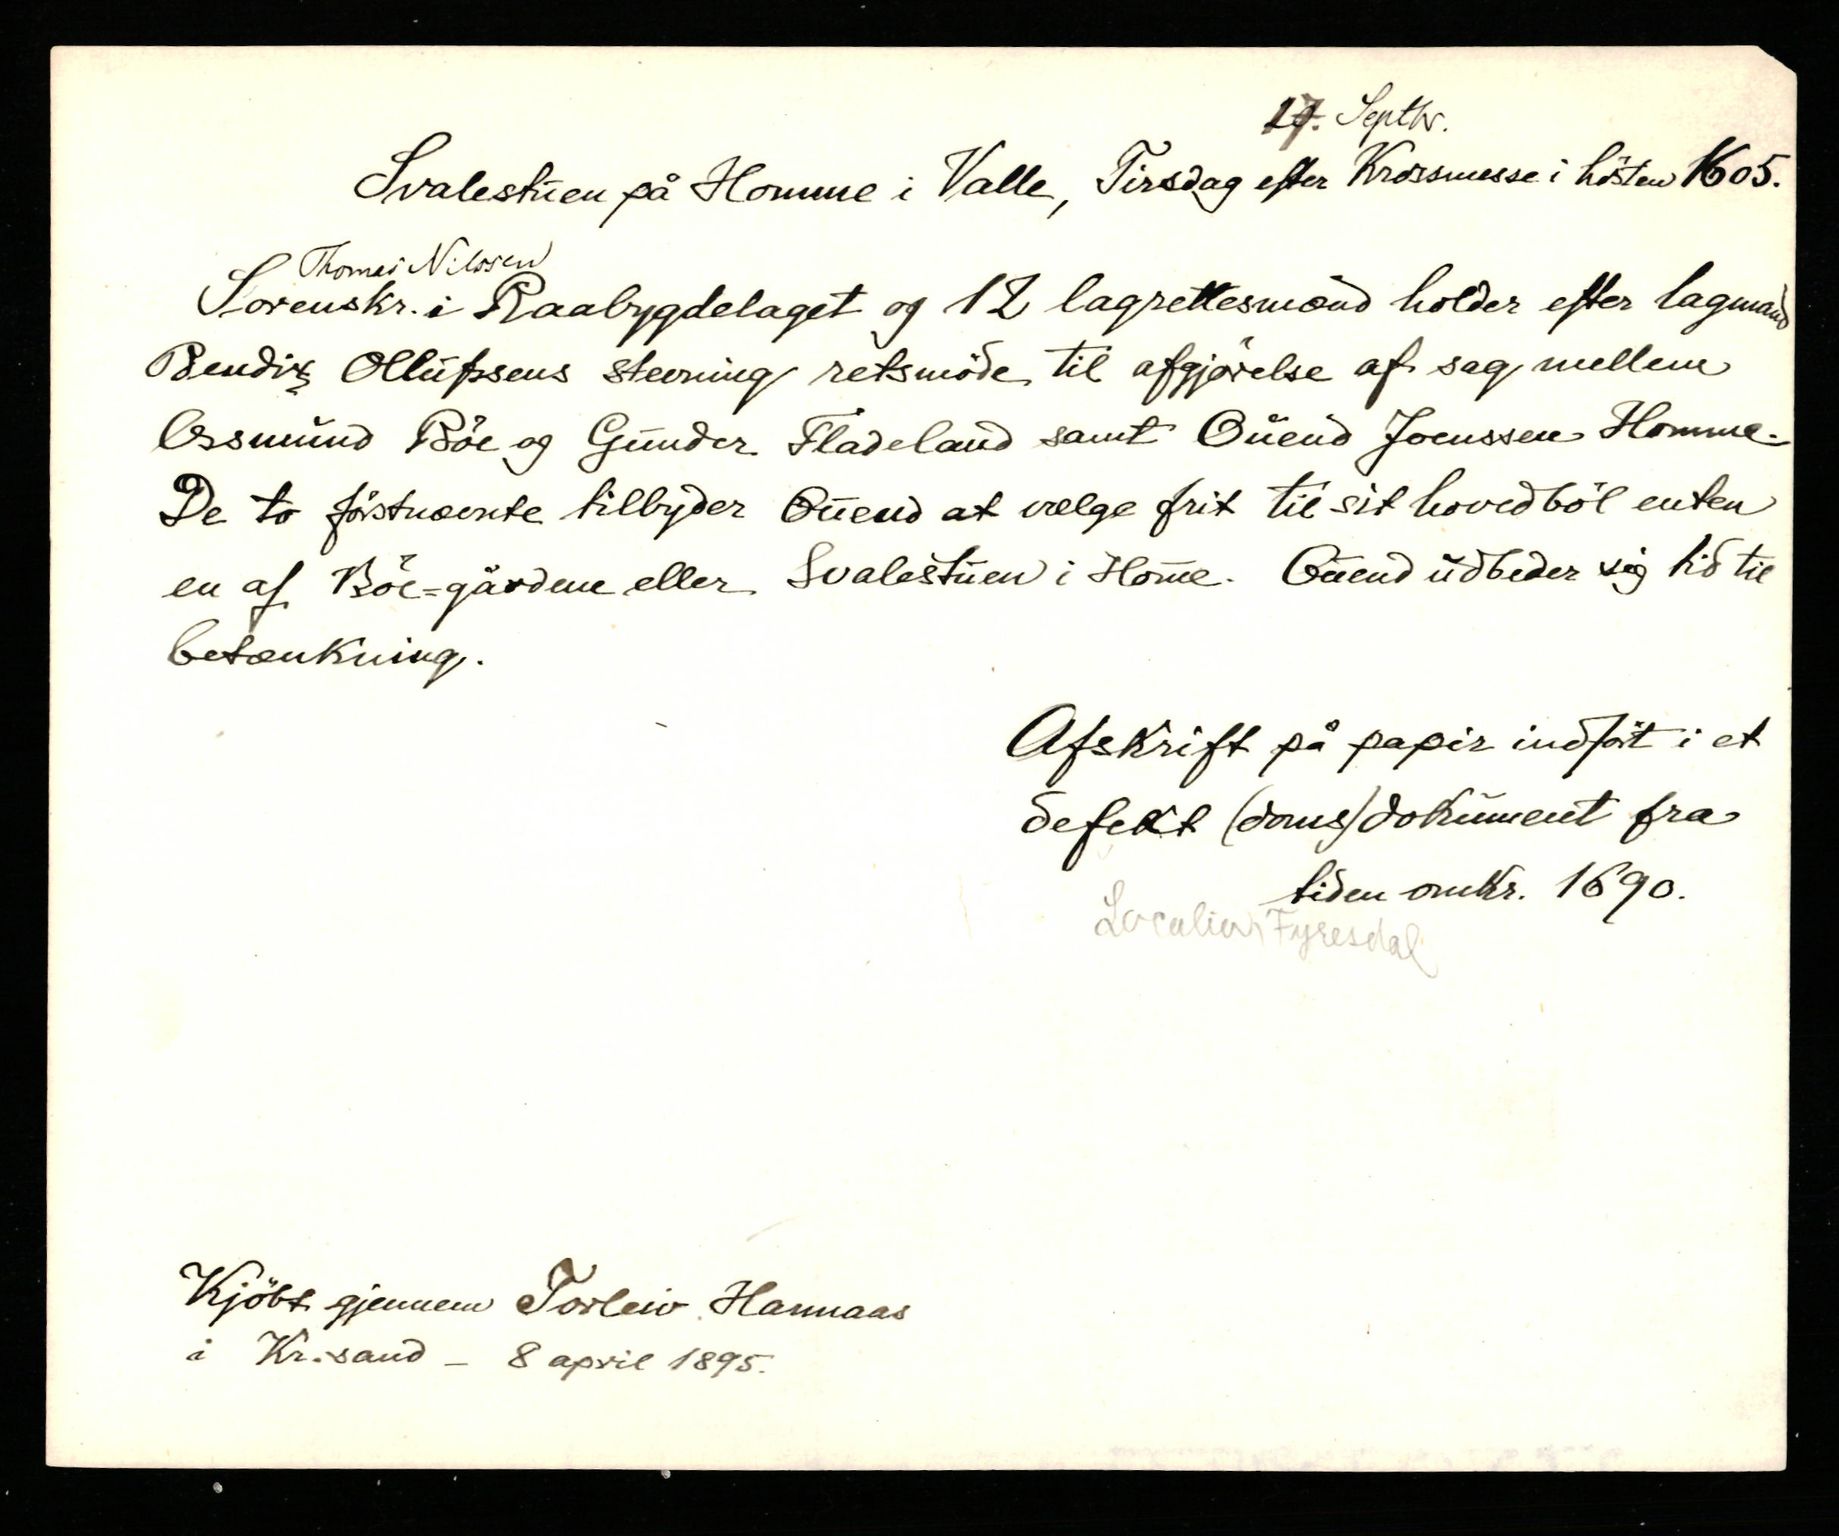 17. Septbr.
Svalestuen på Homme i Valle, Tirsdag efter Krossmesse i hösten 1605.
Thomas Nilssen
Sorenskr. i Raabygdelaget og 12 lagrettesmænd holder efter lagmand
Bendix Ollufssens stevning retsmöde til afgjörelse af sag mellem
Ossmund Böe og Gunder Fladeland samt Ouend Joenssen Homme.
De to förstnævnte tilbyder Ouend at vælge frit til sit hovedböl enten
en af Böe=gårdene eller Svalestuen i Hom̅e. Ouend udbeder sig tid til
betænkning.
Afskrift på papir indfört i et
defekt (doms)dokument fra
tiden omkr. 1690.
Fyresdal
Kjöbt gjennem Torleiv Hannaas
i Kr.sand – 8 april 1895.